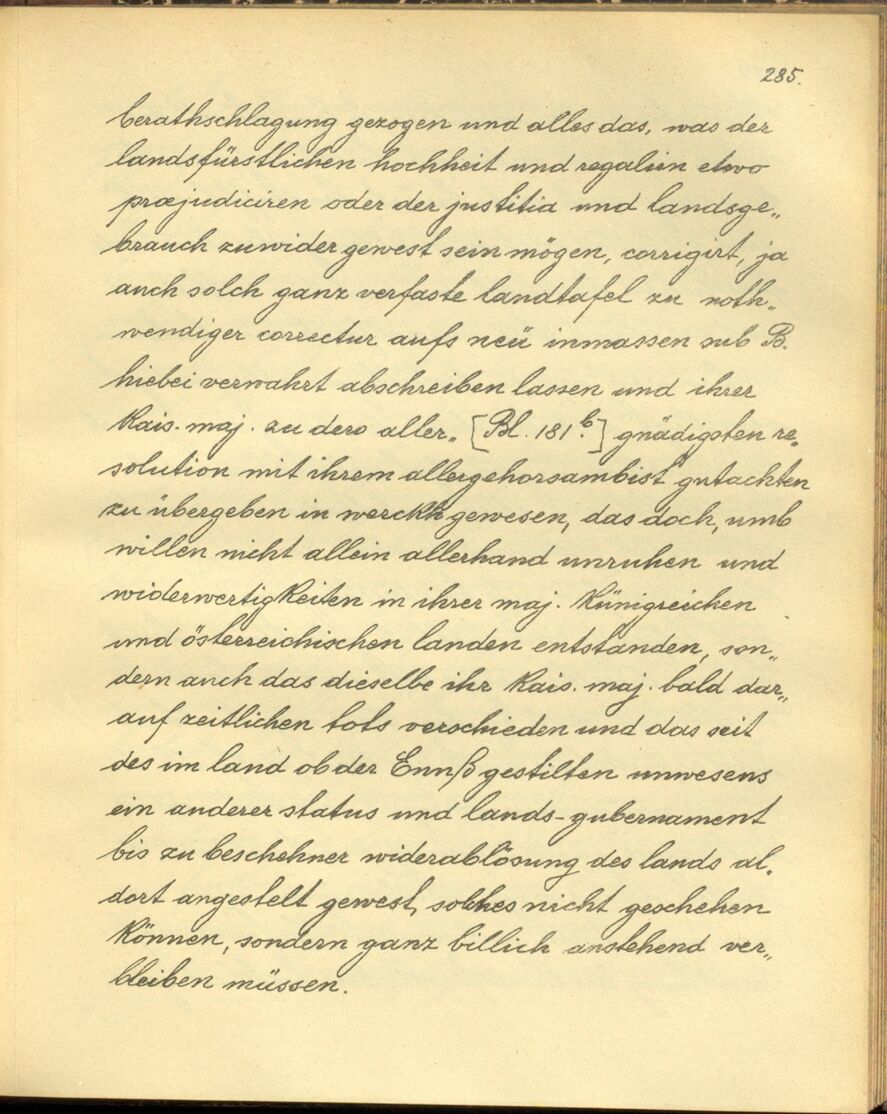 285.
berathschlagung gezogen und alles das, was der
landsfürstlichen hochheit und regalien etwo
præjudiciren oder der justitia und landsge„
brauch zuwider gewest sein mögen, corrigirt, ja
auch solch ganz verfaste landtafel zu noth„
wendiger correctur aufs neü inmassen sub B.
hiebei verwahrt abschreiben lassen und ihrer
Kais. maj. zu dero aller„ [Bl. 181b.] gnädigsten re„
solution mit ihrem allergehorsambist gutachten
zu übergeben in werckh gewesen, das doch, umb
willen nicht allein allerhand unruhen und
widerwertigkeiten in ihrer maj. Künigreichen
und österreichischen landen entstanden, son„
dern auch das dieselbe ihr Kais. maj. bald dar„
auf zeitlichen tots verschieden und das seit
des im land ob der Ennß gestilten unwesens
ein anderer status und lands-gubernament
bis zu beschehner widerablösung des lands al„
dort angestelt gewest, solches nicht geschehen
können, sondern ganz billich anstehend ver„
bleiben müssen.